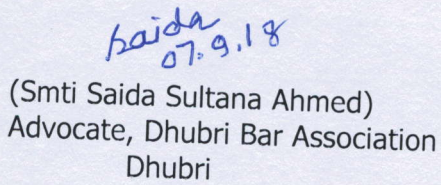 Saida
07.9.18
(Smti Saida Sultana Ahmed)
Advocate, Dhubri Bar Association
Dhubri